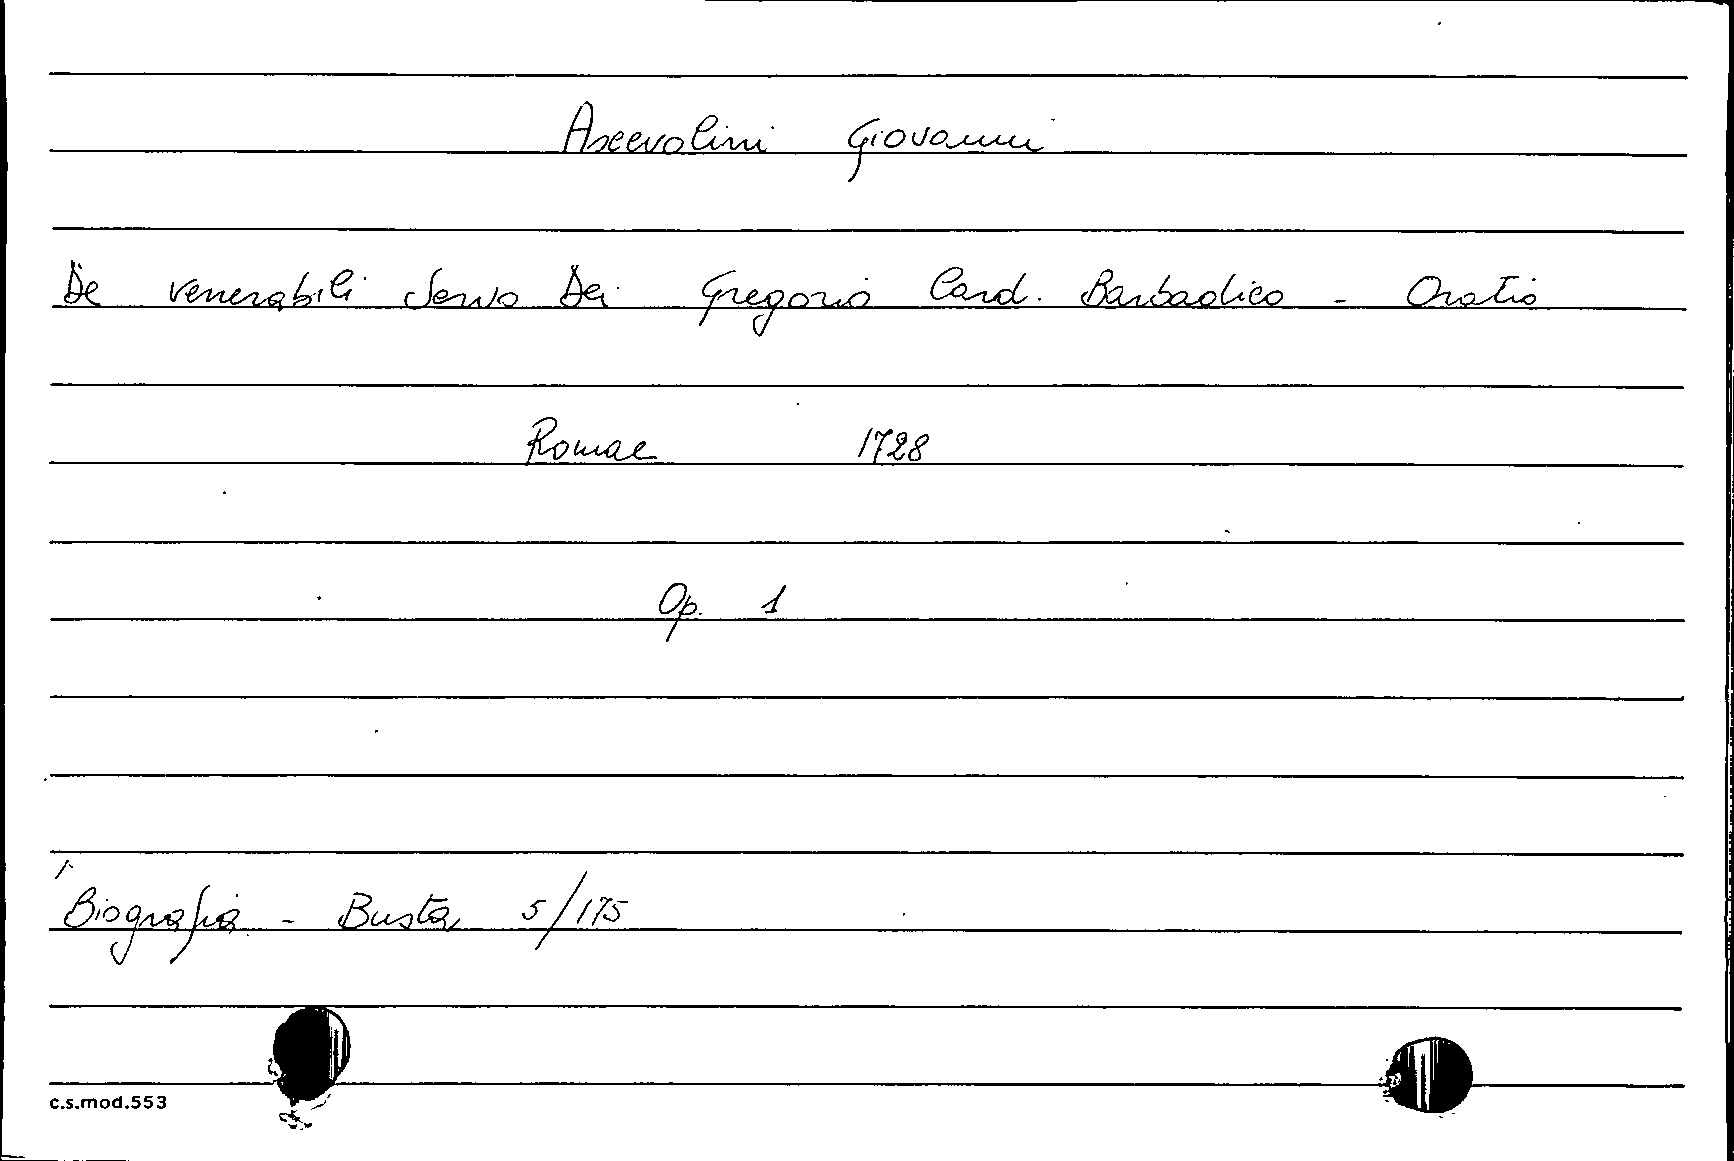 Ascevolini Giovanni
De venerabili servo Dei Gregorio Card. Barbadico - Oratio
Romae 1728
Op. 1
Biografia - Busta 5/175
c.s.mod.553